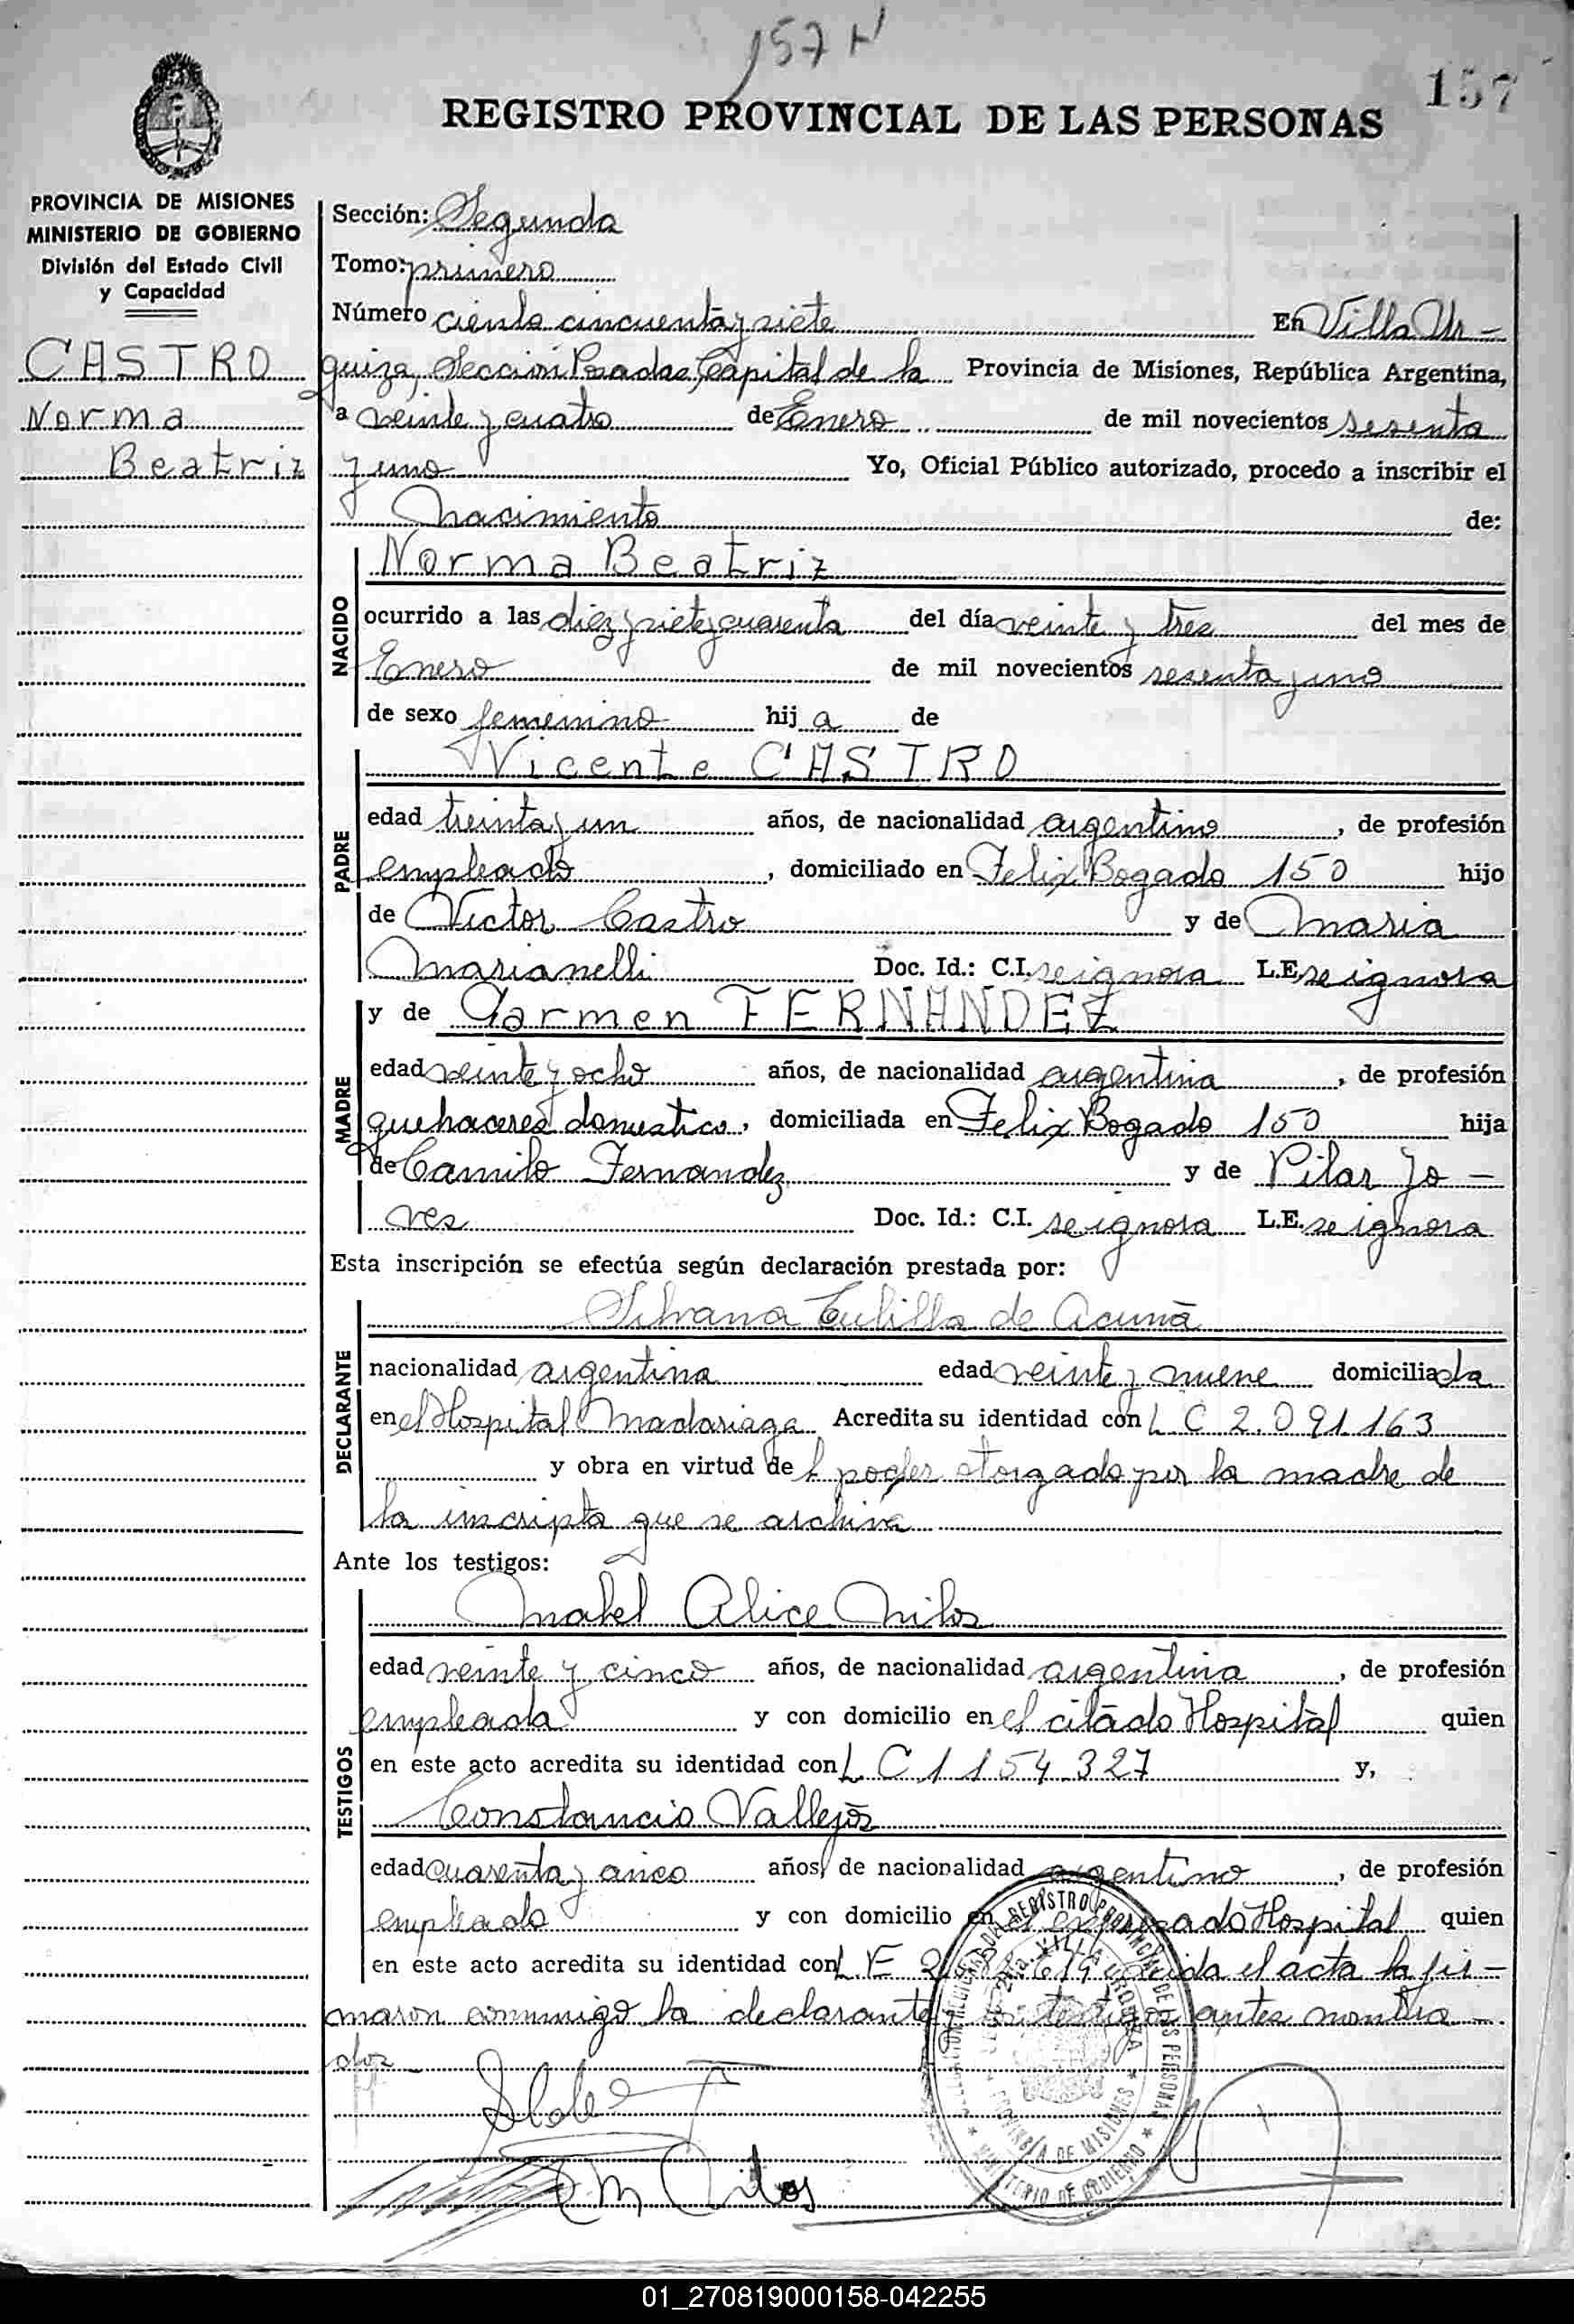 157 N
157
REGISTRO PROVINCIAL DE LAS PERSONAS
PROVINCIA DE MISIONES
MINISTERIO DE GOBIERNO
División del Estado Civil
y Capacidad
CASTRO
Norma
Beatriz
Sección: Segunda
Tomo: primero
Número ciento cincuenta y siete En Villa Ur-
quiza, Sección Posadas, Capital de la Provincia de Misiones, República Argentina,
a veinte y cuatro de Enero de mil novecientos sesenta
y uno Yo, Oficial Público autorizado, procedo a inscribir el
Nacimiento de:
NACIDO
Norma Beatriz
ocurrido a las diez y siete y cuarenta del día veinte y tres del mes de
Enero de mil novecientos sesenta y uno
de sexo femenino hij a de
PADRE
Vicente CASTRO
edad treinta y un años, de nacionalidad argentino, de profesión
empleado, domiciliado en Felix Bogado 150 hijo
de Victor Castro y de Maria
Marianelli Doc. Id.: C.I. se ignora L.E. se ignora
MADRE
y de Carmen FERNANDEZ
edad veinte y ocho años, de nacionalidad argentina, de profesión
quehaceres domestico, domiciliada en Felix Bogado 150 hija
de Camilo Fernandez y de Pilar Jo-
ves Doc. Id.: C.I. se ignora L.E. se ignora
Esta inscripción se efectúa según declaración prestada por:
DECLARANTE
Silvana de Acuña
nacionalidad argentina edad veinte y nueve domiciliada
en el Hospital Madariaga Acredita su identidad con L C 2.091.163
y obra en virtud del poder otorgado por la madre de
la inscripta que se archiva
Ante los testigos:
TESTIGOS
Mabel Alice Milos
edad veinte y cinco años, de nacionalidad argentina, de profesión
empleada y con domicilio en el citado Hospital quien
en este acto acredita su identidad con L. C 1 154.327 y,
Constancio Vallejos
edad cuarenta y cinco años, de nacionalidad argentino, de profesión
empleado y con domicilio en el expresado Hospital quien
en este acto acredita su identidad con L E Leida el acta la fir-
maron conmigo la declarante y testigos antes nombra-
dos
REGISTRO PROVINCIAL DE LAS PERSONAS
VILLA URQUIZA
PROVINCIA DE MISIONES
MINISTERIO DE GOBIERNO
M Milos
01_270819000158-042255